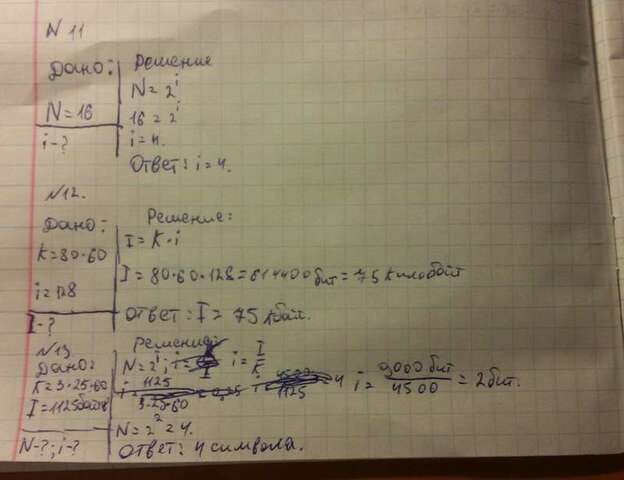 N 11
Дано:
Решение
N = 2^i
N = 16
16 = 2^i
i - ?
i = 4.
Ответ: i = 4.
N12.
Дано:
Решение:
K = 80·60
I = K·i
i = 128
I = 80·60·128 = 614400 бит = 75 килобайт
I - ?
Ответ: I = 75 кбайт.
N13
Дано:
Решение:
K = 3·25·60
N = 2^i; i = I/K
I = 1125 байт
i = 9000 бит / 4500 = 2 бит.
N - ?; i - ?
N = 2^2 = 4.
Ответ: 4 символа.